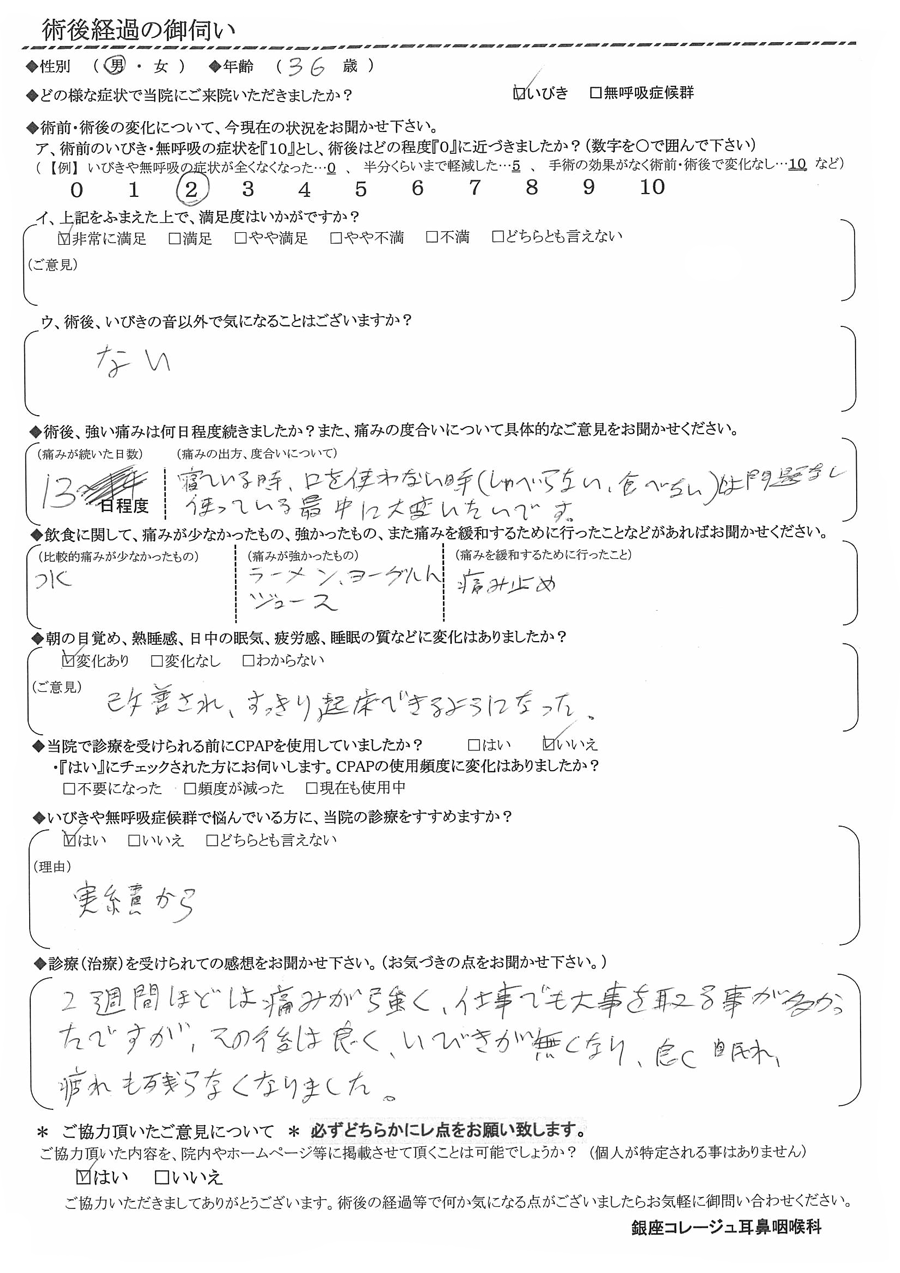 術後経過の御伺い
◆性別 (男・女) ◆年齢 (36歳)
◆どの様な症状で当院にご来院いただきましたか? ☑いびき □無呼吸症候群
◆術前・術後の変化について、今現在の状況をお聞かせ下さい。
ア、術前のいびき・無呼吸の症状を『10』とし、術後はどの程度『0』に近づきましたか?(数字を○で囲んで下さい)
(【例】いびきや無呼吸の症状が全くなくなった…0 、 半分くらいまで軽減した…5 、 手術の効果がなく術前・術後で変化なし…10 など)
0 1 2 3 4 5 6 7 8 9 10
イ、上記をふまえた上で、満足度はいかがですか?
☑非常に満足 □満足 □やや満足 □やや不満 □不満 □どちらとも言えない
(ご意見)
ウ、術後、いびきの音以外で気になることはございますか?
ない
◆術後、強い痛みは何日程度続きましたか?また、痛みの度合いについて具体的なご意見をお聞かせください。
(痛みが続いた日数) (痛みの出方、度合いについて)
13 日程度 寝ている時、口を使わない時(しゃべらない、食べない)は問題なし
使っている最中に大変いたいです。
◆飲食に関して、痛みが少なかったもの、強かったもの、また痛みを緩和するために行ったことなどがあればお聞かせください。
(比較的痛みが少なかったもの) (痛みが強かったもの) (痛みを緩和するために行ったこと)
水 ラーメン、ヨーグルト 痛み止め
ジュース
◆朝の目覚め、熟睡感、日中の眠気、疲労感、睡眠の質などに変化はありましたか?
☑変化あり □変化なし □わからない
(ご意見) 改善され、すっきり起床できるようになった。
◆当院で診療を受けられる前にCPAPを使用していましたか? □はい ☑いいえ
・『はい』にチェックされた方にお伺いします。CPAPの使用頻度に変化はありましたか?
□不要になった □頻度が減った □現在も使用中
◆いびきや無呼吸症候群で悩んでいる方に、当院の診療をすすめますか?
☑はい □いいえ □どちらとも言えない
(理由)
実績から
◆診療(治療)を受けられての感想をお聞かせ下さい。(お気づきの点をお聞かせ下さい。)
2週間ほどは痛みが強く、仕事でも大事を取る事が多かっ
たですが、その後は良く、いびきが無くなり、良く眠れ、
疲れも残らなくなりました。
* ご協力頂いたご意見について * 必ずどちらかにレ点をお願い致します。
ご協力頂いた内容を、院内やホームページ等に掲載させて頂くことは可能でしょうか? (個人が特定される事はありません)
☑はい □いいえ
ご協力いただきましてありがとうございます。術後の経過等で何か気になる点がございましたらお気軽に御問い合わせください。
銀座コレージュ耳鼻咽喉科